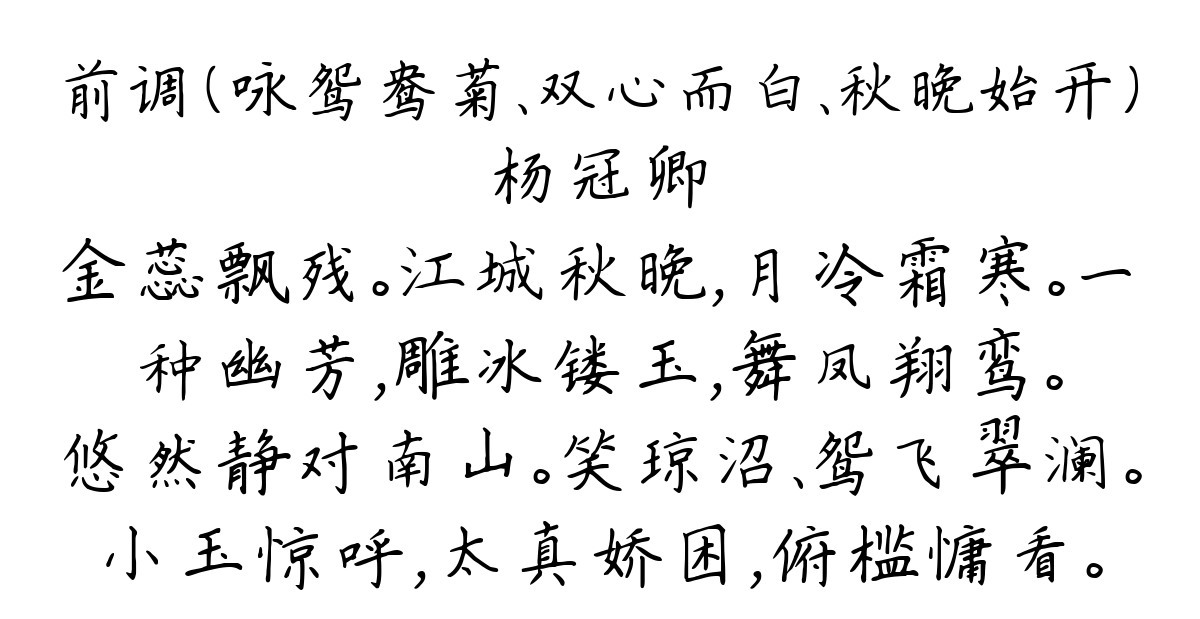 前调(咏鸳鸯菊、双心而白、秋晚始开)
杨冠卿
金蕊飘残。江城秋晚,月冷霜寒。一
种幽芳,雕冰镂玉,舞凤翔鸾。
悠然静对南山。笑琼沼、鸳飞翠澜。
小玉惊呼,太真娇困,俯槛慵看。